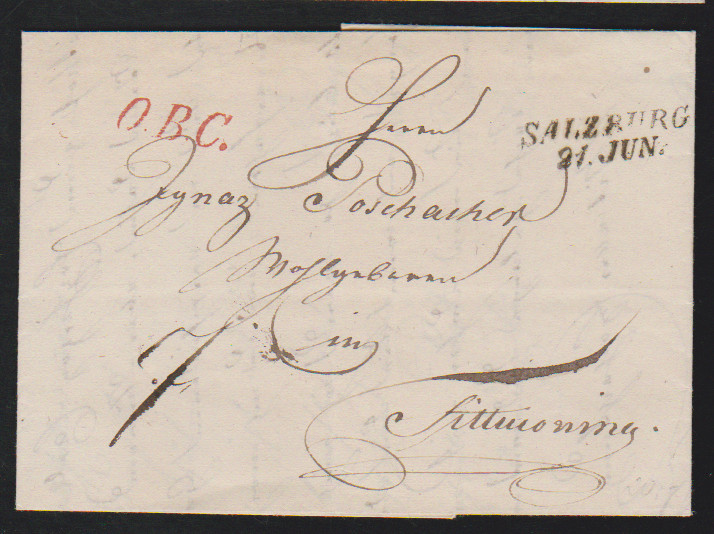 O.B.C.
SALZBURG
21. JUN.
Herrn
Ignaz Poschacher
Wohlgeboren
in
7
Tittmoning.